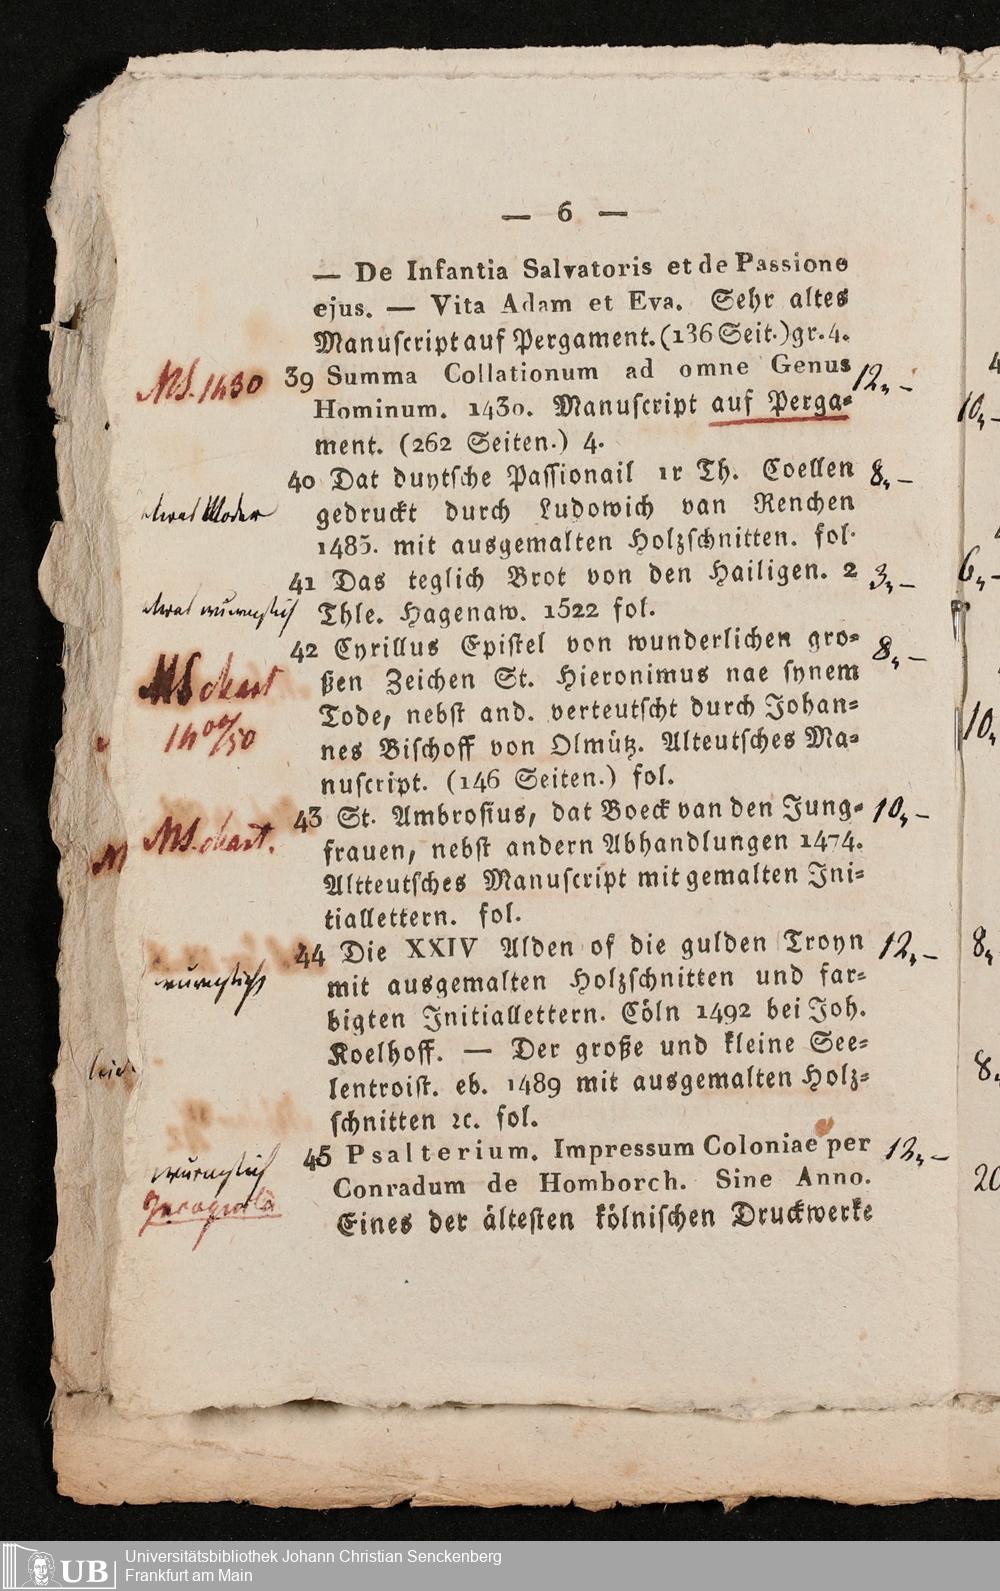 — 6 —
— De Infantia Salvatoris et de Passione
ejus. — Vita Adam et Eva. Sehr altes
Manuscript auf Pergament. (136 Seit.) gr. 4.
MS. 1430 39 Summa Collationum ad omne Genus 12,, –
Hominum. 1430. Manuscript auf Perga=
ment. (262 Seiten.) 4.
40 Dat duytsche Passionail 1r Th. Coellen 8,, –
etwas Moder gedruckt durch Ludowich van Renchen
1485. mit ausgemalten Holzschnitten. fol.
41 Das teglich Brot von den Hailigen. 2 3,, –
etwas wurmstich Thle. Hagenaw. 1522 fol.
42 Cyrillus Epistel von wunderlichen gro= 8,, –
MS chart ßen Zeichen St. Hieronimus nae synem
1400/50 Tode, nebst and. verteutscht durch Johan=
nes Bischoff von Olmütz. Alteutsches Ma=
nuscript. (146 Seiten.) fol.
43 St. Ambrosius, dat Boeck van den Jung= 10,, –
MS. chart. frauen, nebst andern Abhandlungen 1474.
Altteutsches Manuscript mit gemalten Ini=
tiallettern. fol.
44 Die XXIV Alden of die gulden Troyn 12,, –
wurmstich mit ausgemalten Holzschnitten und far=
bigten Initiallettern. Cöln 1492 bei Joh.
Koelhoff. — Der große und kleine See=
lentroist. eb. 1489 mit ausgemalten Holz=
schnitten ꝛc. fol.
45 Psalterium. Impressum Coloniae per 12,, –
wurmstich Conradum de Homborch. Sine Anno.
Eines der ältesten kölnischen Druckwerke
10,, –
6,, –
10,,
8,,
8,,
20
UB
Universitätsbibliothek Johann Christian Senckenberg
Frankfurt am Main